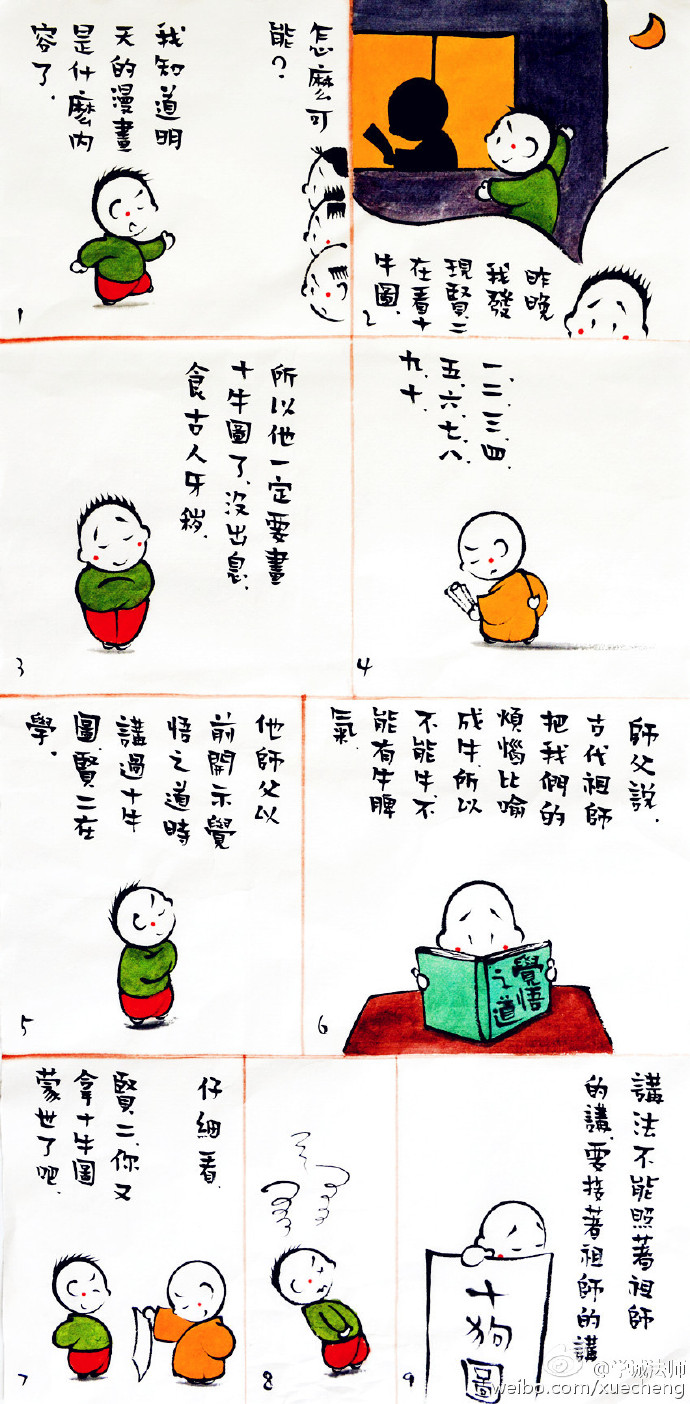 我知道明
天的漫畫
是什麼內
容了.
怎麼可
能？
1
昨晚
我發
現賢二
在看十
牛圖.
2
所以他一定要畫
十牛圖了.沒出息.
食古人牙穢.
3
一.二.三.四.
五.六.七.八.
九.十.
4
他師父以
前開示覺
悟之道時
講過十牛
圖.賢二在
學.
5
師父說.
古代祖師
把我們的
煩惱比喻
成牛.所以
不能牛.不
能有牛脾
氣.
覺悟
之道
6
賢二.你又
拿十牛圖
蒙世了吧.
仔細看.
7
8
講法不能照著祖師
的講.要接著祖師的講
十狗圖
9
@学诚法师
weibo.com/xuecheng